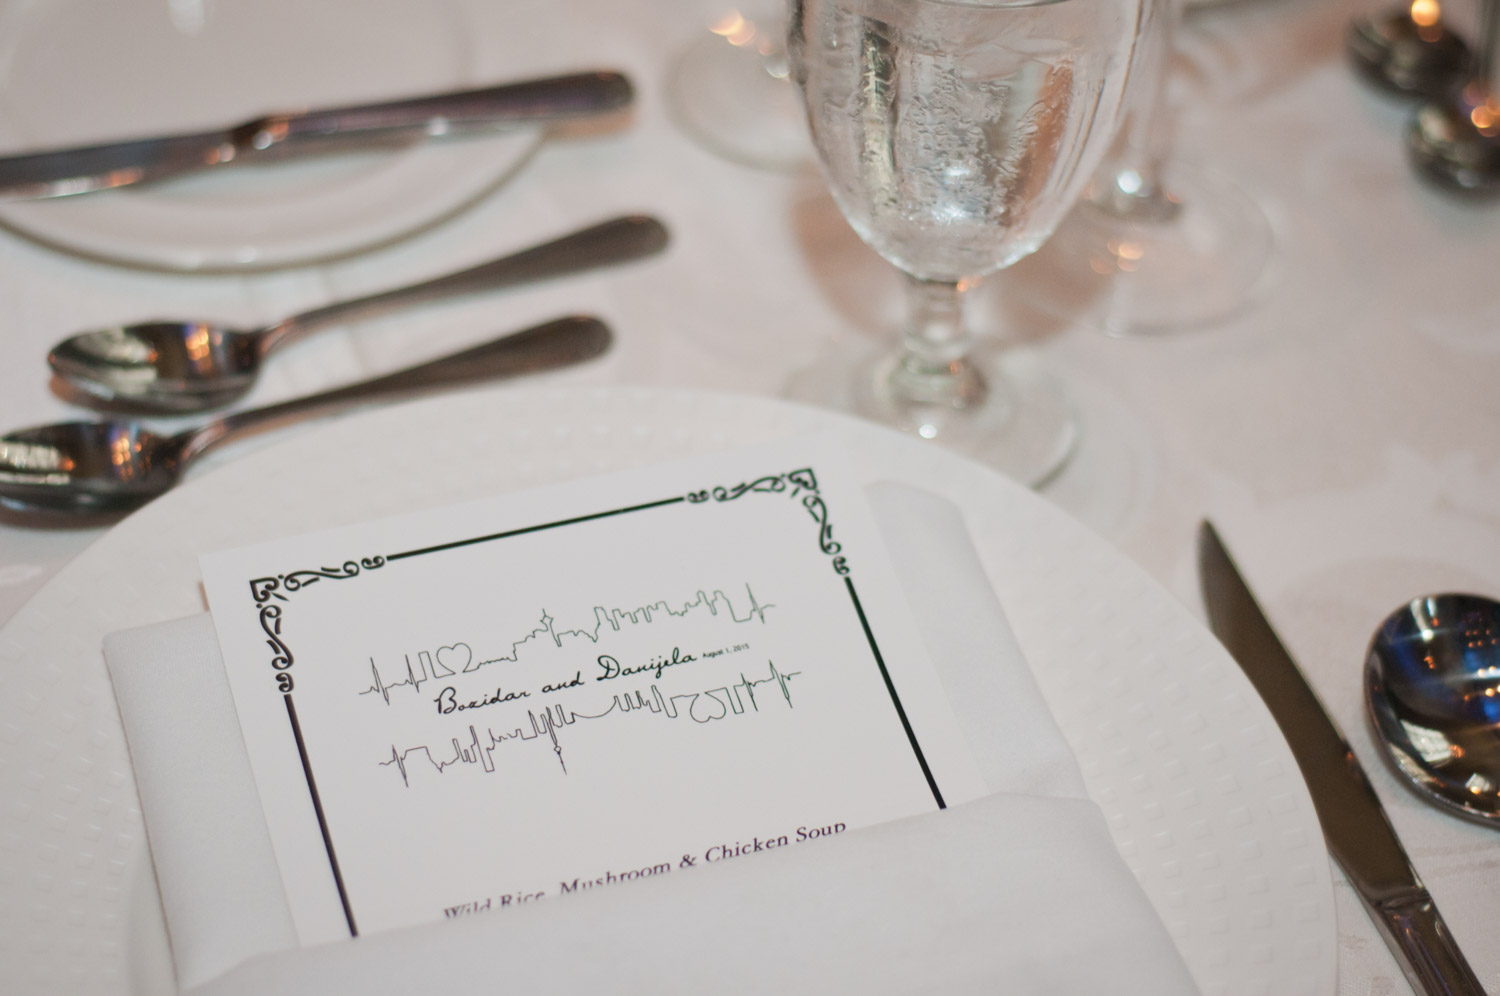 Bozidar and Danijela August 1, 2015
Wild Rice, Mushroom & Chicken Soup